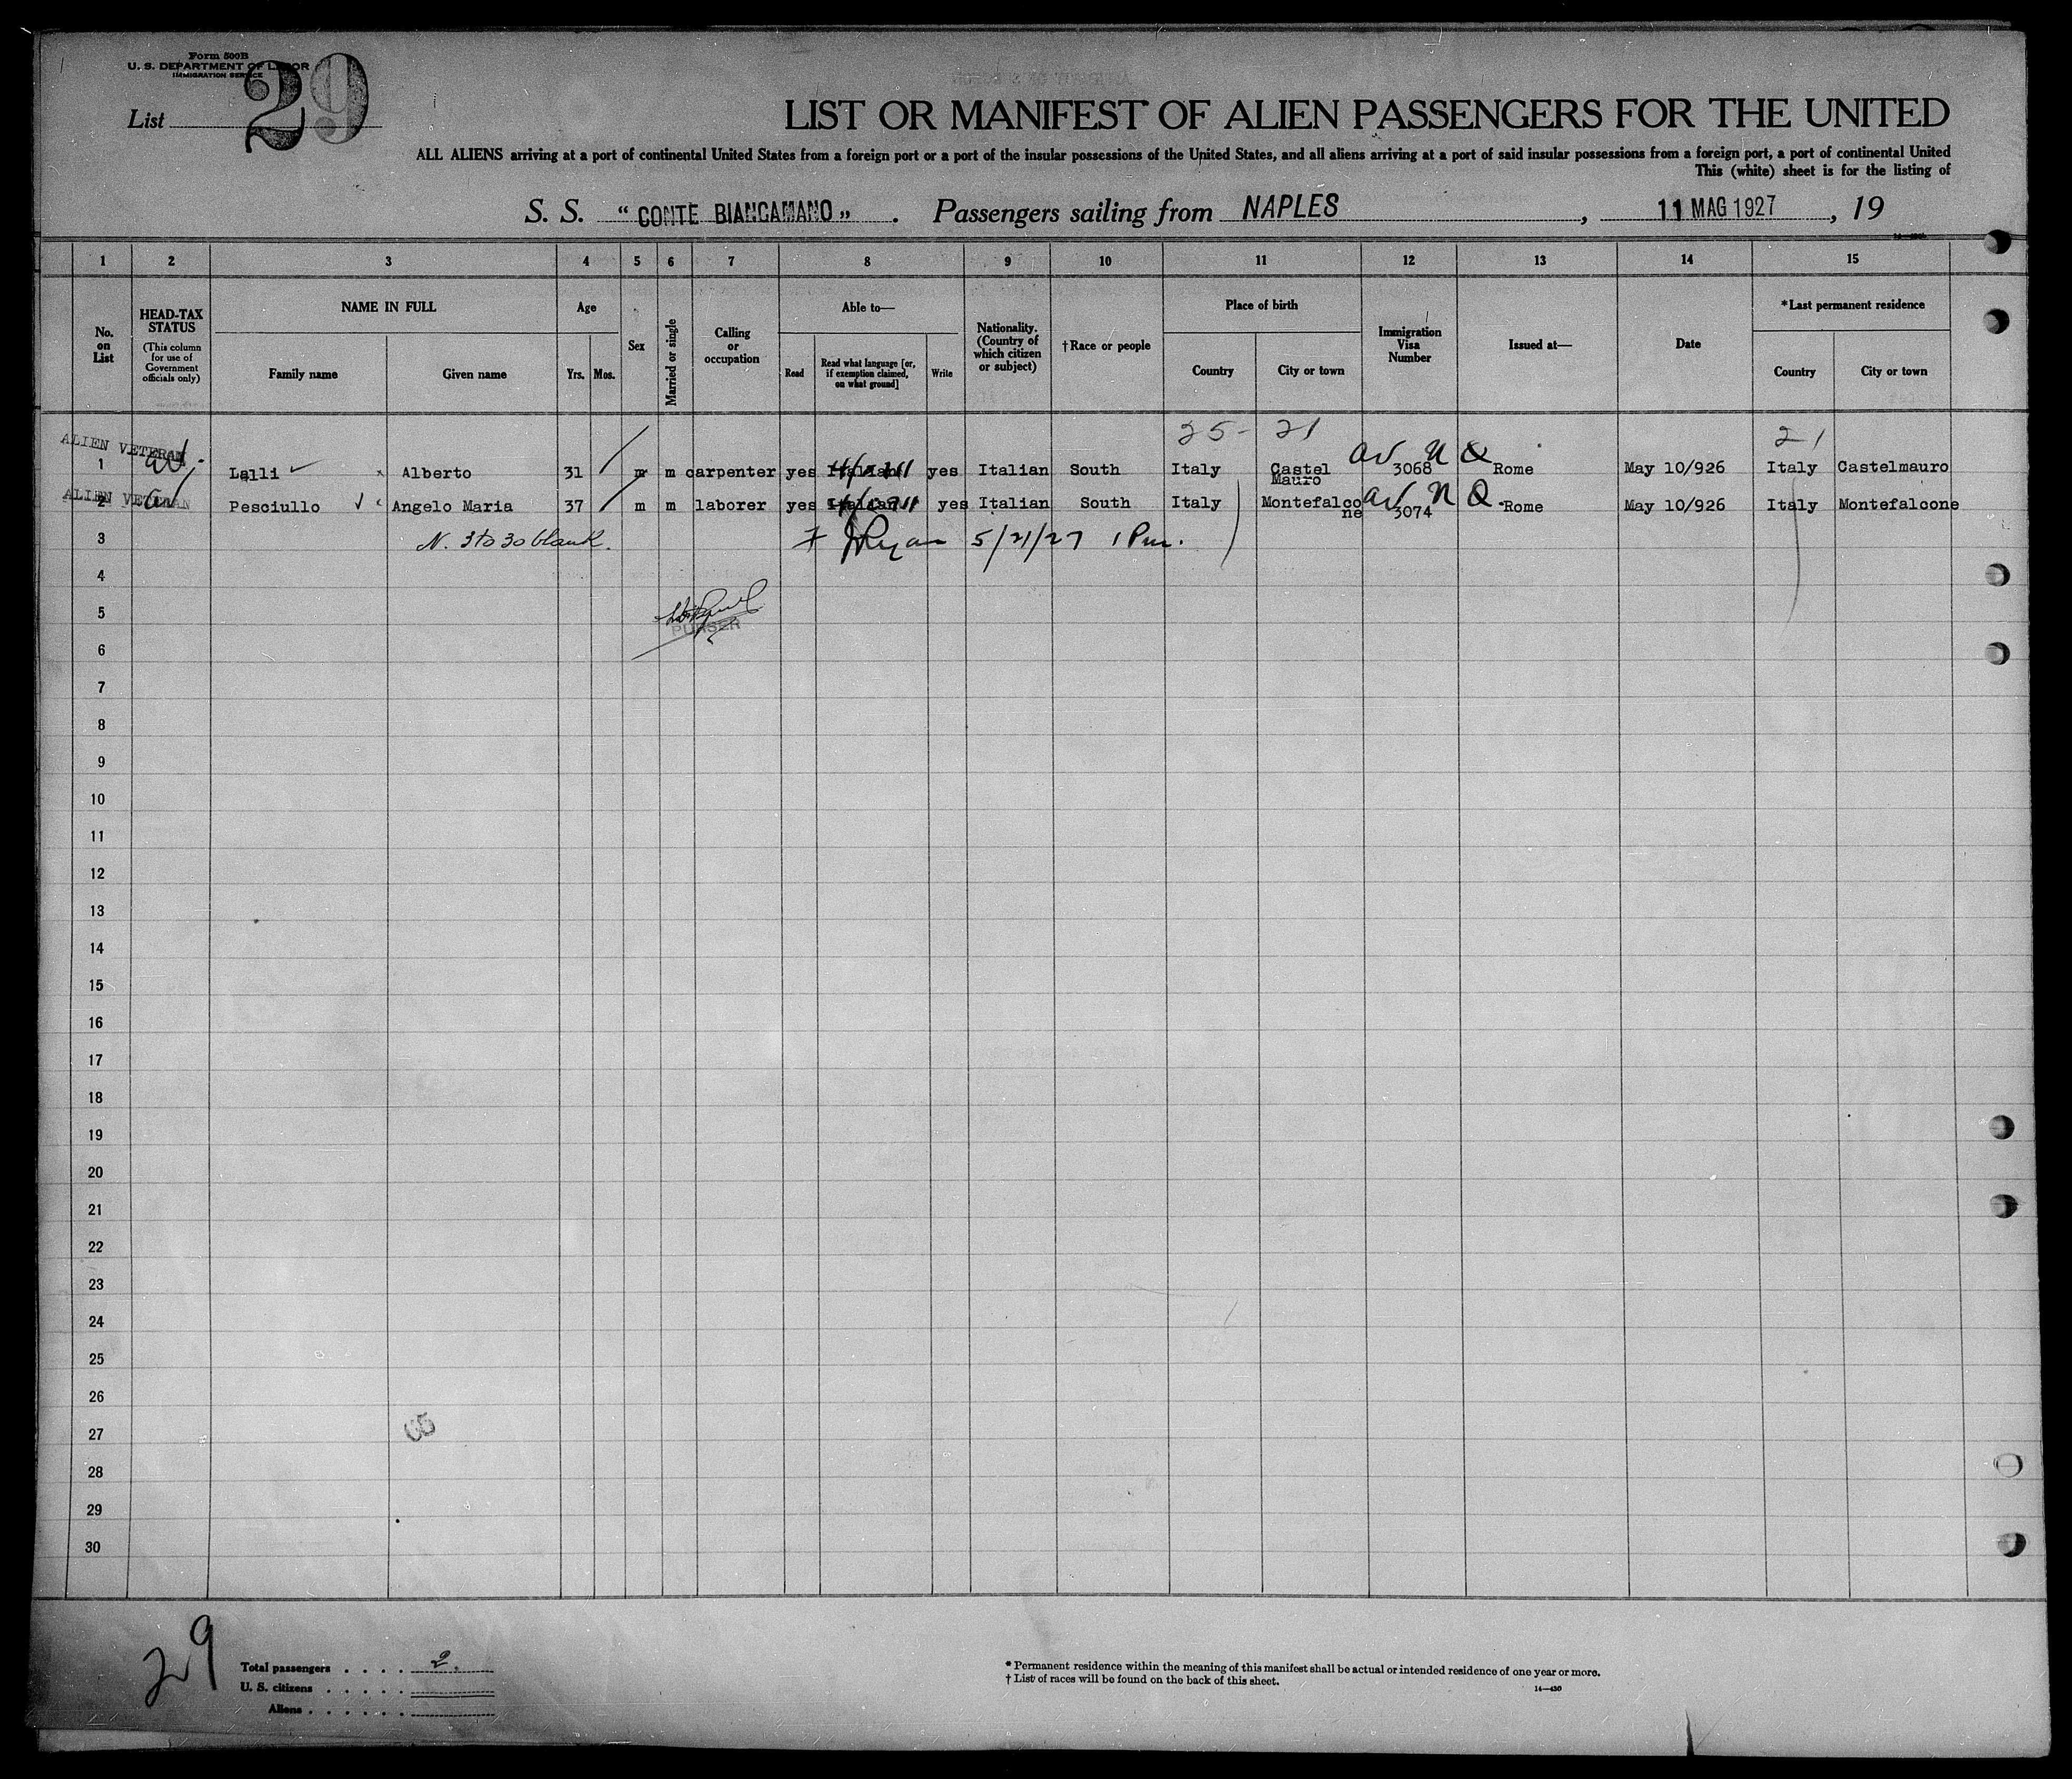 Form 500B
U. S. DEPARTMENT OF LABOR
IMMIGRATION SERVICE
List 29
LIST OR MANIFEST OF ALIEN PASSENGERS FOR THE UNITED
ALL ALIENS arriving at a port of continental United States from a foreign port or a port of the insular possessions of the United States, and all aliens arriving at a port of said insular possessions from a foreign port, a port of continental United
This (white) sheet is for the listing of
S. S. "CONTE BIANCAMANO". Passengers sailing from NAPLES, 11 MAG 1927, 19
1 2 3 4 5 6 7 8 9 10 11 12 13 14 15
No. on List
HEAD-TAX STATUS
(This column for use of Government officials only)
NAME IN FULL
Family name Given name
Age
Yrs. Mos.
Sex
Married or single
Calling or occupation
Able to—
Read
Read what language [or, if exemption claimed, on what ground]
Write
Nationality. (Country of which citizen or subject)
†Race or people
Place of birth
Country City or town
Immigration Visa Number
Issued at—
Date
*Last permanent residence
Country City or town
25- 21 21
ALIEN VETERAN
1 Lalli Alberto 31 m m carpenter yes Italian yes Italian South Italy Castel Mauro 3068 Rome May 10/926 Italy Castelmauro
ALIEN VETERAN
2 Pesciullo Angelo Maria 37 m m laborer yes Italian yes Italian South Italy Montefalcone 3074 Rome May 10/926 Italy Montefalcone
3 N. 3 to 30 blank. Ryan 5/21/27 1 Pm.
4
5
PURSER
6
7
8
9
10
11
12
13
14
15
16
17
18
19
20
21
22
23
24
25
26
27
28
29
30
29
Total passengers . . . . 2.
U. S. citizens . . . . .
Aliens . . . . . .
* Permanent residence within the meaning of this manifest shall be actual or intended residence of one year or more.
† List of races will be found on the back of this sheet.
14—430